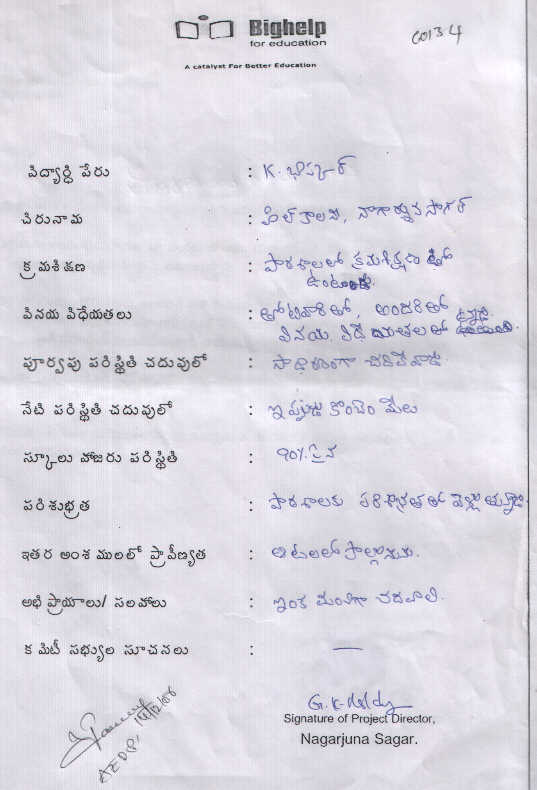 Bighelp
for education
A catalyst For Better Education
విద్యార్థి పేరు : K. భాస్కర్
చిరునామ : హిల్ కాలని, నాగార్జున సాగర్
క్రమశిక్షణ : పాఠశాలలో క్రమశిక్షణ తో
ఉంటాడు.
వినయ విధేయతలు : తోటివారితో, అందరితో
వినయ విధేయతలతో
పూర్వపు పరిస్థితి చదువులో : సాధారణంగా చదివేవాడు
నేటి పరిస్థితి చదువులో : ఇప్పుడు కొంచెం మేలు
స్కూలు హాజరు పరిస్థితి : 90% పైన
పరిశుభ్రత : పాఠశాలకు పరిశుభ్రతతో
ఇతర అంశములలో ప్రావీణ్యత : ఆటలలో పాల్గొనును.
అభిప్రాయాలు/ సలహాలు : ఇంక మంచిగా చదవాలి.
కమిటీ సభ్యుల సూచనలు : —
G.K. Reddy
Signature of Project Director,
Nagarjuna Sagar.